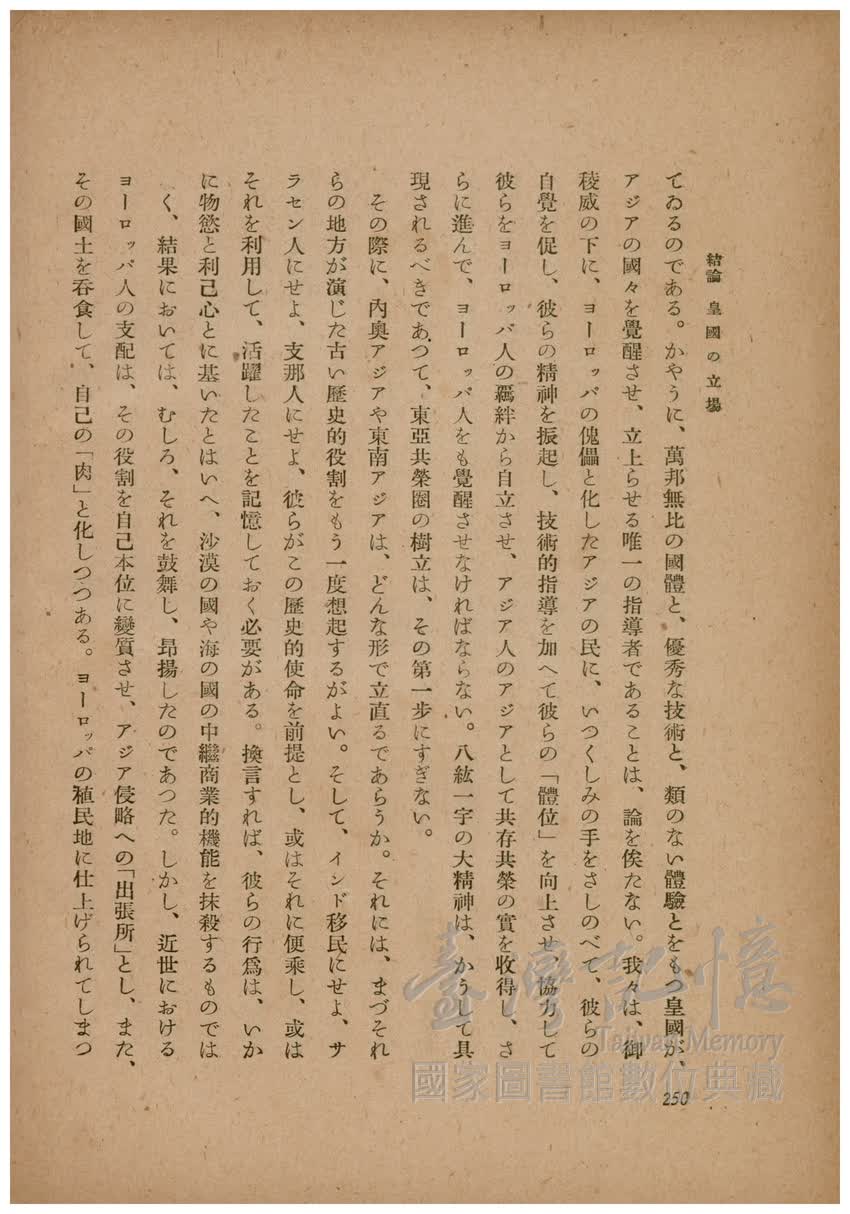 結論 皇國の立場
てゐるのである。かやうに、萬邦無比の國體と、優秀な技術と、類のない體驗とをもつ皇國が、
アジアの國々を覺醒させ、立上らせる唯一の指導者であることは、論を俟たない。我々は、御
稜威の下に、ヨーロッパの傀儡と化したアジアの民に、いつくしみの手をさしのべて、彼らの
自覺を促し、彼らの精神を振起し、技術的指導を加へて彼らの「體位」を向上させ、協力して
彼らをヨーロッパ人の羈絆から自立させ、アジア人のアジアとして共存共榮の實を收得し、さ
らに進んで、ヨーロッパ人をも覺醒させなければならない。八紘一宇の大精神は、かうして具
現されるべきであつて、東亞共榮圈の樹立は、その第一步にすぎない。
その際に、內奧アジアや東南アジアは、どんな形で立直るであらうか。それには、まづそれ
らの地方が演じた古い歷史的役割をもう一度想起するがよい。そして、インド移民にせよ、サ
ラセン人にせよ、支那人にせよ、彼らがこの歷史的使命を前提とし、或はそれに便乘し、或は
それを利用して、活躍したことを記憶しておく必要がある。換言すれば、彼らの行爲は、いか
に物慾と利己心とに基いたとはいへ、沙漠の國や海の國の中繼商業的機能を抹殺するものでは
く、結果においては、むしろ、それを鼓舞し、昂揚したのであつた。しかし、近世における
ヨーロッパ人の支配は、その役割を自己本位に變質させ、アジア侵略への「出張所」とし、また、
その國土を吞食して、自己の「肉」と化しつつある。ヨーロッパの植民地に仕上げられてしまつ
250
臺灣記憶
Taiwan Memory
國家圖書館數位典藏